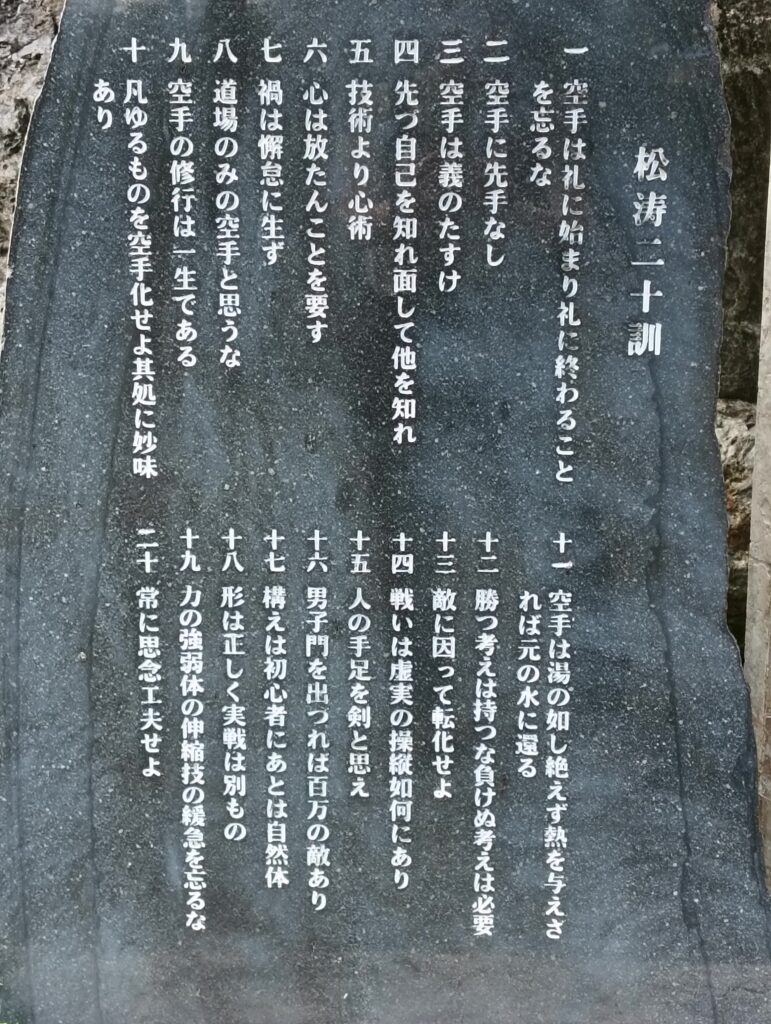 松涛二十訓
一 空手は礼に始まり礼に終わること
を忘るな
二 空手に先手なし
三 空手は義のたすけ
四 先づ自己を知れ面して他を知れ
五 技術より心術
六 心は放たんことを要す
七 禍は懈怠に生ず
八 道場のみの空手と思うな
九 空手の修行は一生である
十 凡ゆるものを空手化せよ其処に妙味
あり
十一 空手は湯の如し絶えず熱を与えさ
れば元の水に還る
十二 勝つ考えは持つな負けぬ考えは必要
十三 敵に因って転化せよ
十四 戦いは虚実の操縦如何にあり
十五 人の手足を剣と思え
十六 男子門を出づれば百万の敵あり
十七 構えは初心者にあとは自然体
十八 形は正しく実戦は別もの
十九 力の強弱体の伸縮技の緩急を忘るな
二十 常に思念工夫せよ